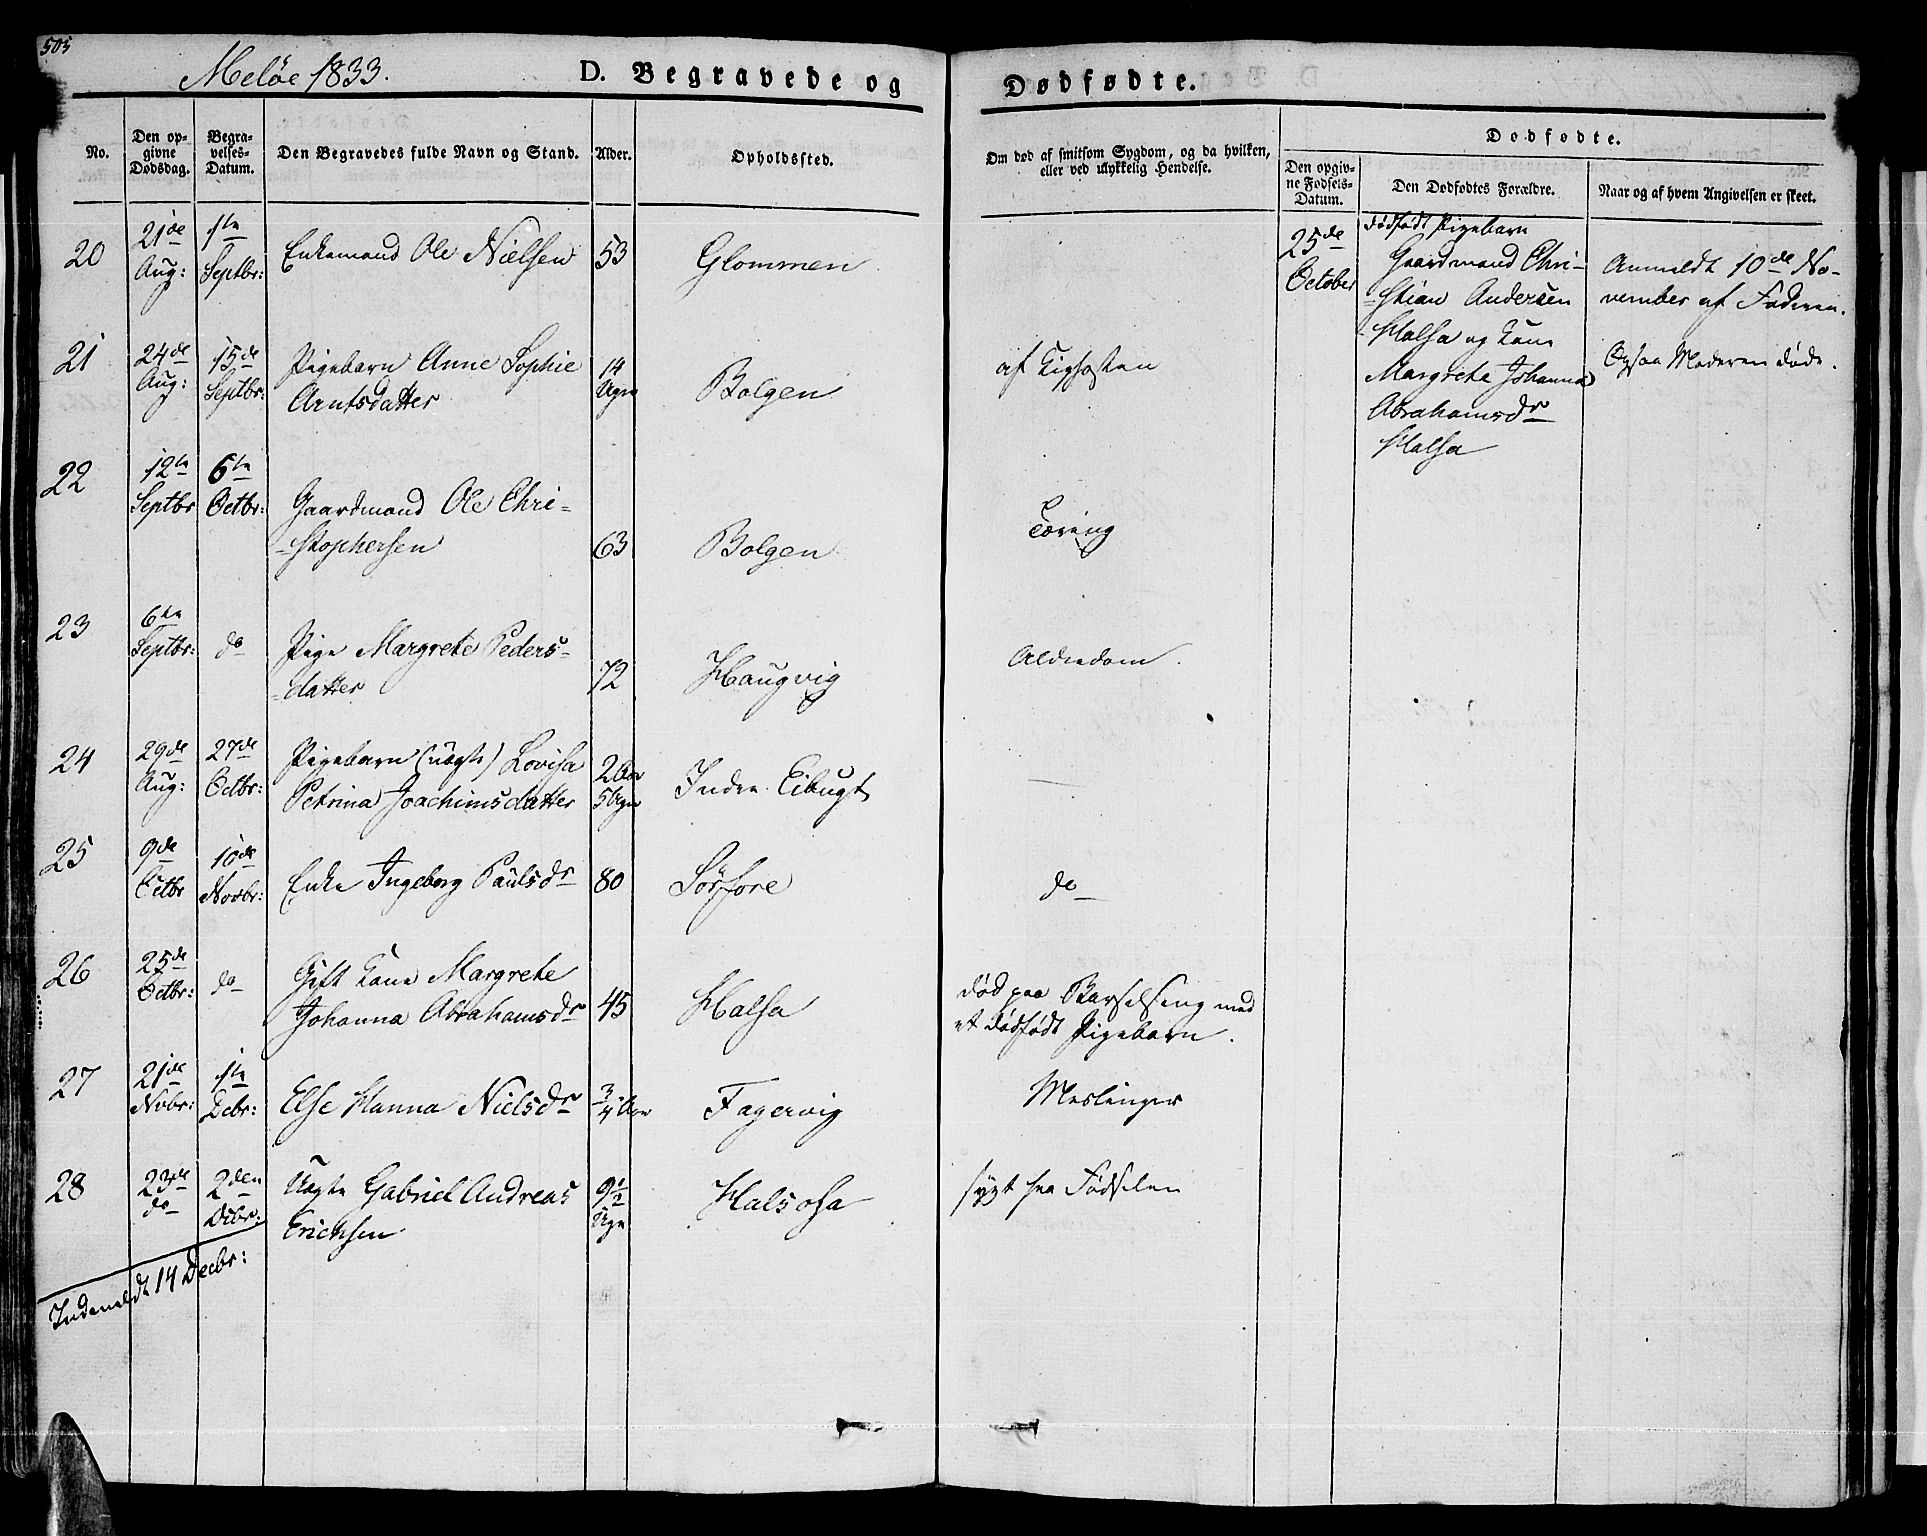 505
Meløe 1833.
D. Begravede og
Dødfødte.
No.
Den op-
givne
Dødsdag.
Begra-
velses-
Datum.
Den Begravedes fulde Navn og Stand.
Alder.
Opholdssted.
Om død af smitsom Sygdom, og da hvilken,
eller ved ulykkelig Hendelse.
Dødfødte.
Den opgiv-
ne Fødsels-
Datum.
Den Dødfødtes Forældre.
Naar og af hvem Angivelsen er skeet.
20
21de
Aug:
1te
Septbr:
Enkemand Ole Nielsen
53
Glommen
25de
October
dødfødt Pigebarn
Gaardmand Chri-
stian Andersen
Halsa og Kone
Margrete Johanna
Abrahamsdr
Halsa
Anmeldt 10de No-
vember af Faderen.
Ogsaa Moderen døde.
21
24de
Aug:
15de
Septbr:
Pigebarn Anne Sophie
Arntsdatter
14
Uger
Bolgen
af Kighosten
22
12te
Septbr
6te
Octbr:
Gaardmand Ole Chri-
-stophersen
63
Bolgen
Tæring
23
6te
Septbr:
do
Pige Margrete Peders-
-datter
72
Haugvig
Alderdom.
24
29de
Aug:
27de
Octbr:
Pigebarn (uægte) Lovisa
Petrina Joachimsdatter
2 Aar
5 Uger
Indre Eibugt
—
25
9de
Octbr
10de
Novbr:
Enke Ingeborg Paulsdr
80
Sørfore
do
26
25de
Octbr:
do
Gift Kone Margrete
Johanna Abrahamsdr
45
Halsa
død paa Barselseng med
et dødfødt Pigebarn.
27
21de
Nvbr:
1te
Debr:
Else Hanna Nielsdr
3/4 Aar
Fagervig
Meslinger
28
23de
do
2den
Dcbr:
Uægte Gabriel Andreas
Erichsen
9 1/2
Uge
Halsosa
sygt fra Fødselen
Indmeldt 14 Decbr: